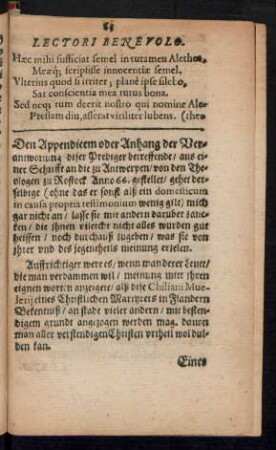 LECTORI BENEVOLO.
Hæc mihi sufficiat semel in tutamen Alethes,
Meæq́; scripsisse innocentiæ semel,
Vlterius quod si irriter; planè ipse silebo,
Sat conscientia mea tutus bona.
Sed neq; tum deerit nostro qui nomine Ale-
Præstam diu, asserat viriliter lubens. (the-
Den Appendicem oder Anhang der Ver-
antwortung diser Prediger betreffende/ aus ei-
ner Schrifft an die zu Antwerpen/ von den The-
ologen zu Rostock Anno 66. gestellet/ gehet der-
selbige (ohne das er sonst alß ein domesticum
in causa propria testimonium wenig gilt) mich
gar nicht an/ lasse sie mir andern darüber zanc-
ken/ die ihnen villeicht nicht alles wurden gut
heissen/ noch durchauß zugeben/ was sie von
jhrer vnd des jegentheils meinung erzelen.
Auffrichtiger were es/ wenn man derer Leute/
die man verdammen wil/ meinung mit jhren
eignen worten anzeigete/ alß dise Chiliani Mue-
lerij eines Christlichen Martyrers in Flandern
Bekentnuß/ an stade vieler andern/ mit besten-
digem grundt angezogen werden mag. dauon
man aller verstendigen Christen vrtheil wol dul-
den kan.
Eines